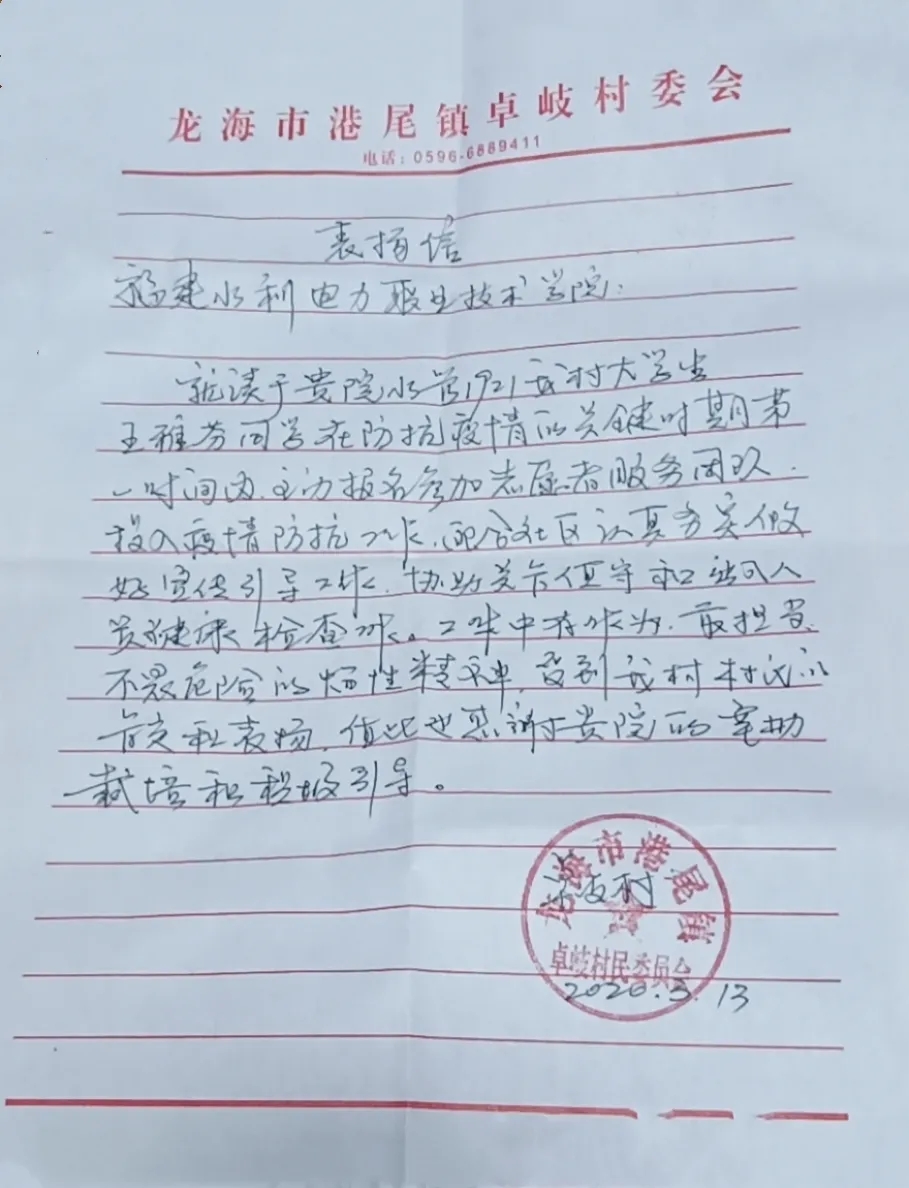 龙海市港尾镇卓岐村委会
电话:0596-6889411
表扬信
福建水利电力职业技术学院:
就读于贵院水管1921我村大学生
王雅芬同学在防抗疫情的关键时期第
一时间内.主动报名参加志愿者服务团队.
投入疫情防抗工作.配合社区认真务实做
好宣传引导工作.协助关卡值守和出入人
员健康检查工作。工作中有作为.敢担当、
不畏危险的牺牲精神.受到我村村民的
肯定和表扬.值此也感谢于贵院的
栽培和积极引导。
卓岐村
龙海市港尾镇
卓岐村民委员会
2020.3.13